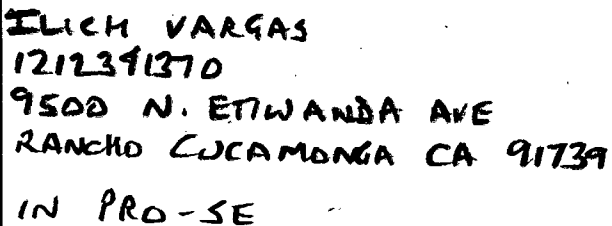 ILICH VARGAS
1212391370
9500 N. ETIWANDA AVE
RANCHO CUCAMONGA CA 91739
IN PRO-SE